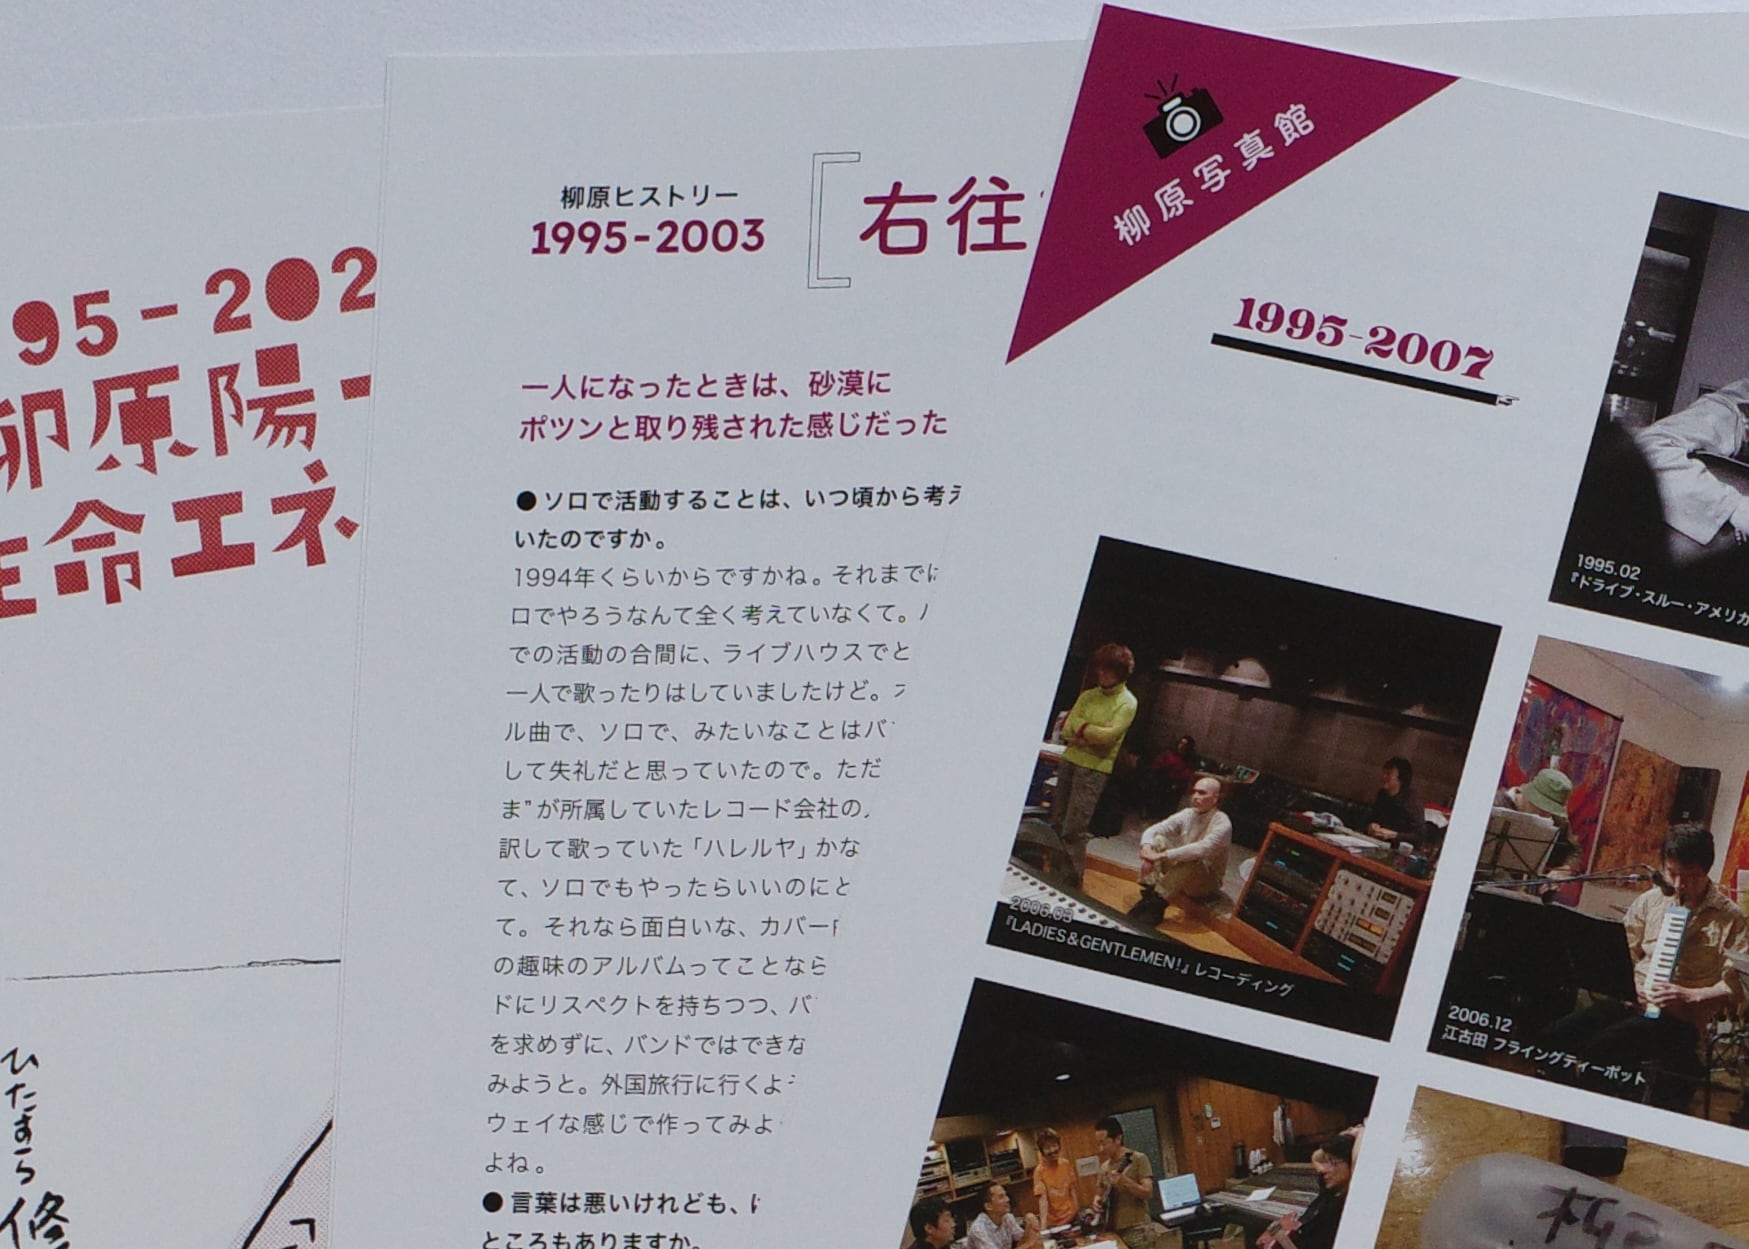 95-202
柳原陽一
生命エネ
ひたすら
修
柳原ヒストリー
1995-2003
右往
一人になったときは、砂漠に
ポツンと取り残された感じだった
●ソロで活動することは、いつ頃から考え
いたのですか。
1994年くらいからですかね。それまでに
ロでやろうなんて全く考えていなくて。
での活動の合間に、ライブハウスでと
一人で歌ったりはしていましたけど。
ル曲で、ソロで、みたいなことはバ
して失礼だと思っていたので。ただ
ま”が所属していたレコード会社の
訳して歌っていた「ハレルヤ」かな
て、ソロでもやったらいいのにと
て。それなら面白いな、カバー
の趣味のアルバムってことなら
ドにリスペクトを持ちつつ、バ
を求めずに、バンドではできな
みようと。外国旅行に行くよ
ウェイな感じで作ってみよ
よね。
●言葉は悪いけれども、
ところもありますか。
柳原写真館
1995-2007
1995.02
『ドライブ・スルー・アメリカ
2006.03
『LADIES&GENTLEMEN!』レコーディング
2006.12
江古田 フライングティーポット